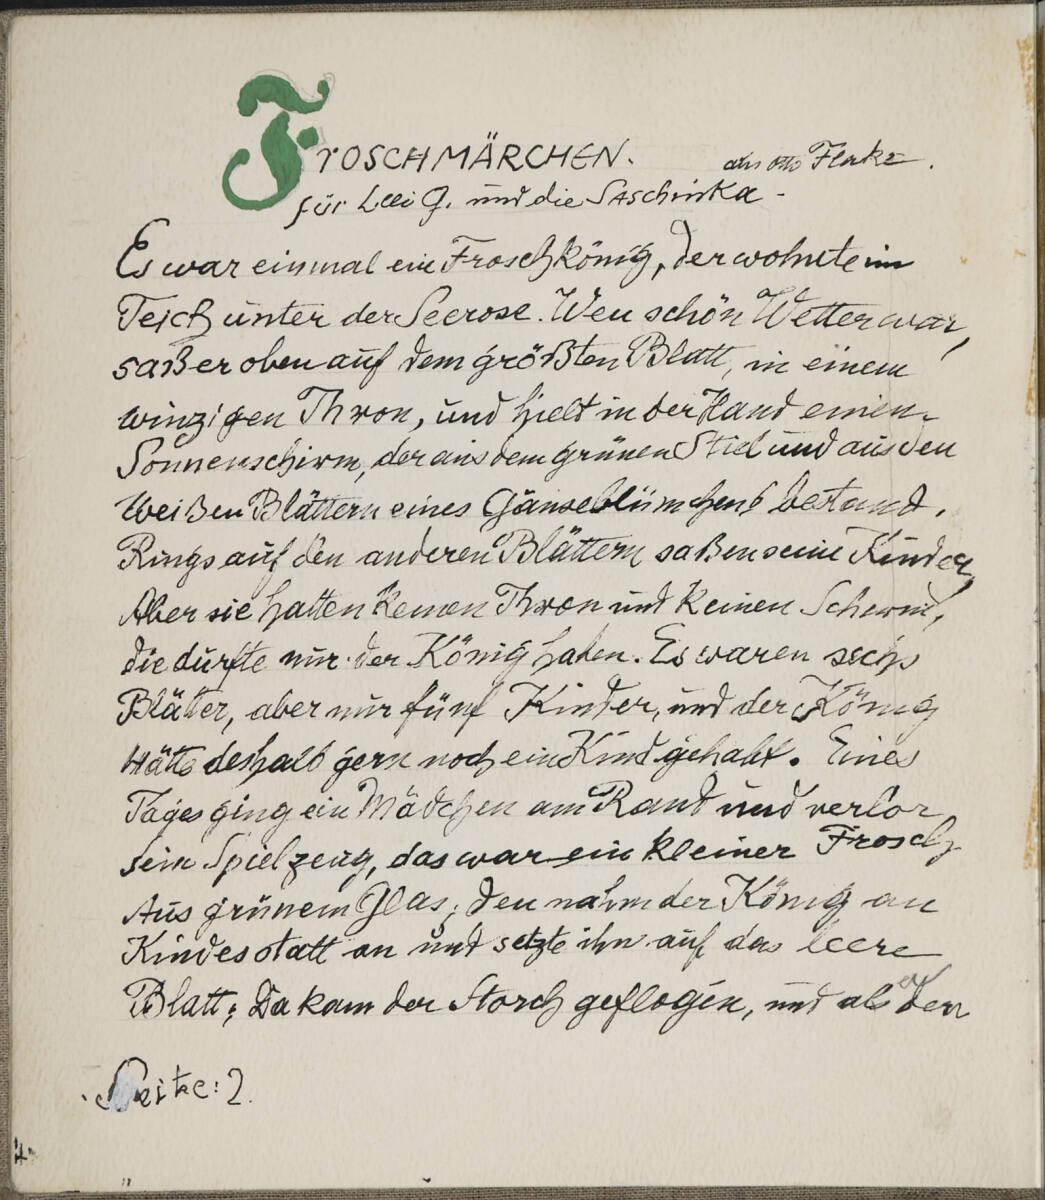 FROSCHMÄRCHEN. aus otto Flake.
für Lili G. und die Saschinka -
Es war einmal ein Froschkönig, der wohnte im
Teich unter der Seerose. Wen schön Wetter war,
saß er oben auf dem größten Blatt, in einem
winzigen Thron, und hielt in der Hand einen
Sonnenschirm, der aus dem grünen Stiel und aus den
weißen Blättern eines Gänseblümchens bestand.
Rings auf den anderen Blättern saßen seine Kinder,
Aber sie hatten keinen Thron und keinen Schirm,
die durfte nur der König haben. Es waren sechs
Blätter, aber nur fünf Kinder, und der König
hätte deshalb gern noch ein Kind gehabt. Eines
Tages ging ein Mädchen am Rand und verlor
sein Spielzeug, das war ein kleiner Frosch
Aus grünem Glas; den nahm der König an
Kindesstatt an und setzte ihn auf das leere
Blatt; Da kam der Storch geflogen, und als er den
Seite: 2.